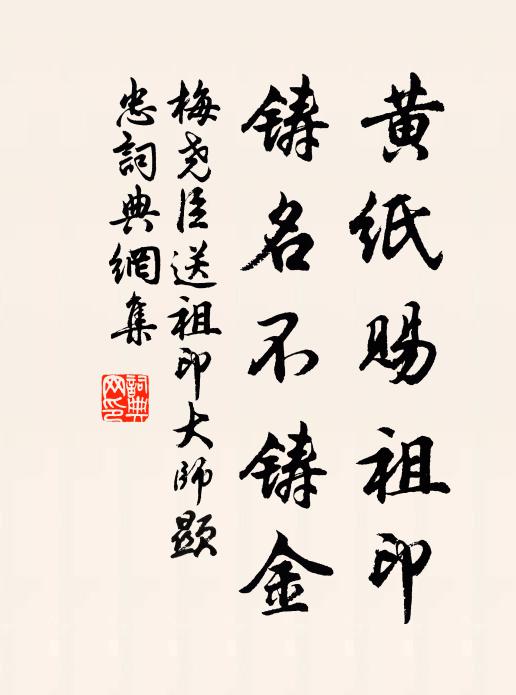 黄纸赐祖印
铸名不铸金
梅尧臣送祖印大师显
忠詞典網集
詞典
网印